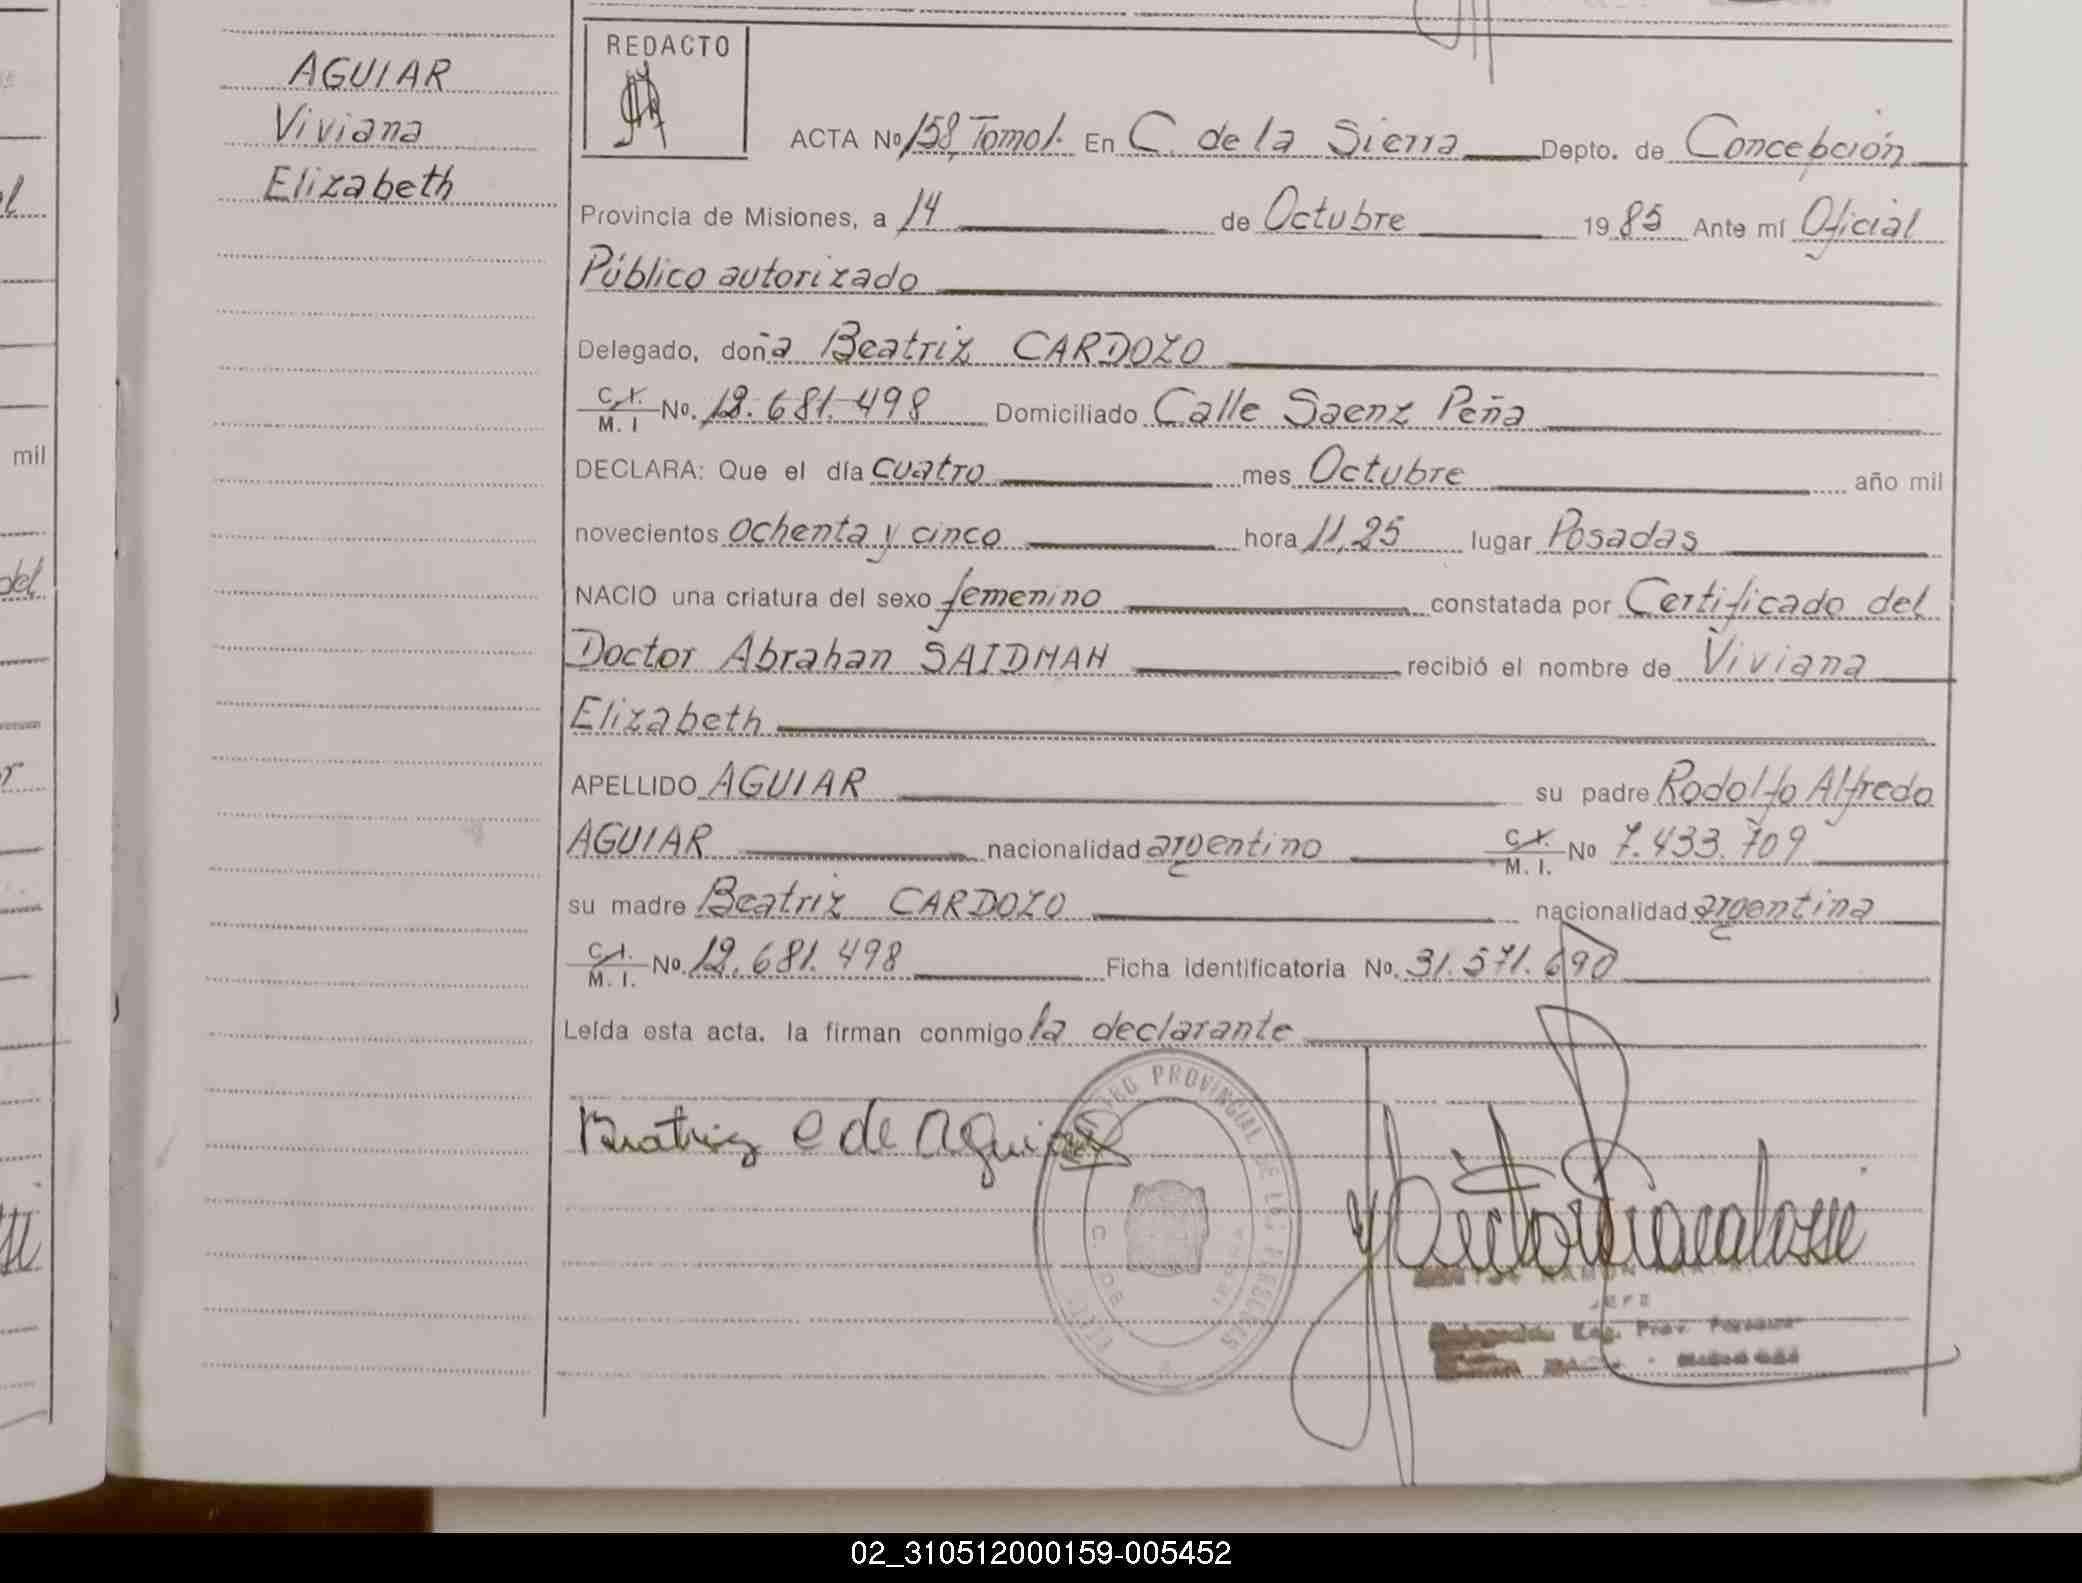 AGUIAR
Viviana
Elizabeth
REDACTO
ACTA Nº 158, Tomo I. En C. de la Sierra Depto. de Concepción
Provincia de Misiones, a 14 de Octubre 1985 Ante mí Oficial
Público autorizado
Delegado, doña Beatriz CARDOZO
C. I. M. I No. 12.681.498 Domiciliado Calle Saenz Peña
DECLARA: Que el día cuatro mes Octubre año mil
novecientos ochenta y cinco hora 11,25 lugar Posadas
NACIO una criatura del sexo femenino constatada por Certificado del
Doctor Abrahan SAIDMAN recibió el nombre de Viviana
Elizabeth
APELLIDO AGUIAR su padre Rodolfo Alfredo
AGUIAR nacionalidad argentino C. I. M. I. Nº 7.433.709
su madre Beatriz CARDOZO nacionalidad argentina
C. I. M. I. Nº. 12.681.498 Ficha identificatoria No. 31.571.690
Leída esta acta. la firman conmigo la declarante
Beatriz C de Aguiar
PROVINCIAL DE LAS PERSONAS
C. DE
RAMON
JEFE
Reg. Prov. Personas
mil
del
02_310512000159-005452